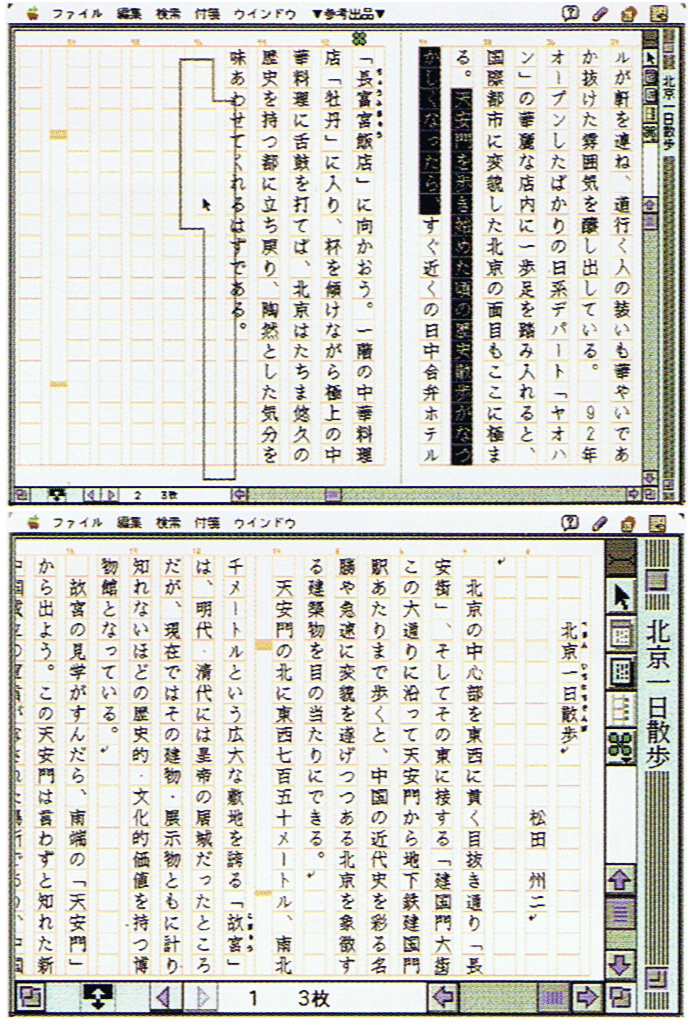 ファイル 編集 検索 付箋 ウインドウ ▼参考出品▼
北京一日散歩
ルが軒を連ね、道行く人の装いも華やいであ
か抜けた雰囲気を醸し出している。 92年
オープンしたばかりの日系デパート「ヤオハ
ン」の華麗な店内に一歩足を踏み入れると、
国際都市に変貌した北京の面目もここに極ま
る。天安門を歩き始めた頃の歴史散歩がなつ
かしくなったら、すぐ近くの日中合弁ホテル
「長富宮飯店」に向かおう。一階の中華料理
店「牡丹」に入り、杯を傾けながら極上の中
華料理に舌鼓を打てば、北京はたちま悠久の
歴史を持つ都に立ち戻り、陶然とした気分を
味あわせてくれるはずである。
2 3枚
ファイル 編集 検索 付箋 ウインドウ
北京一日散歩
北京一日散歩
松田 州二
北京の中心部を東西に貫く目抜き通り「長
安街」、そしてその東に接する「建国門大街
この大通りに沿って天安門から地下鉄建国門
駅あたりまで歩くと、中国の近代史を彩る名
勝や急速に変貌を遂げつつある北京を象徴す
る建築物を目の当たりにできる。
天安門の北に東西七百五十メートル、南北
千メートルという広大な敷地を誇る「故宮」
は、明代・清代には皇帝の居城だったところ
だが、現在ではその建物・展示物ともに計り
知れないほどの歴史的・文化的価値を持つ博
物館となっている。
故宮の見学がすんだら、南端の「天安門」
から出よう。この天安門は言わずと知れた新
中国成立の宣言がなされた場所であり、中国
1 3枚